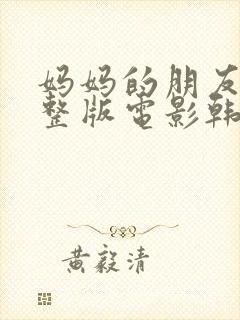 妈妈的朋友
整版电影韩
黄毅清